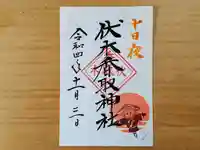 十日夜
伏木香取神社
令和四年
十一月三日